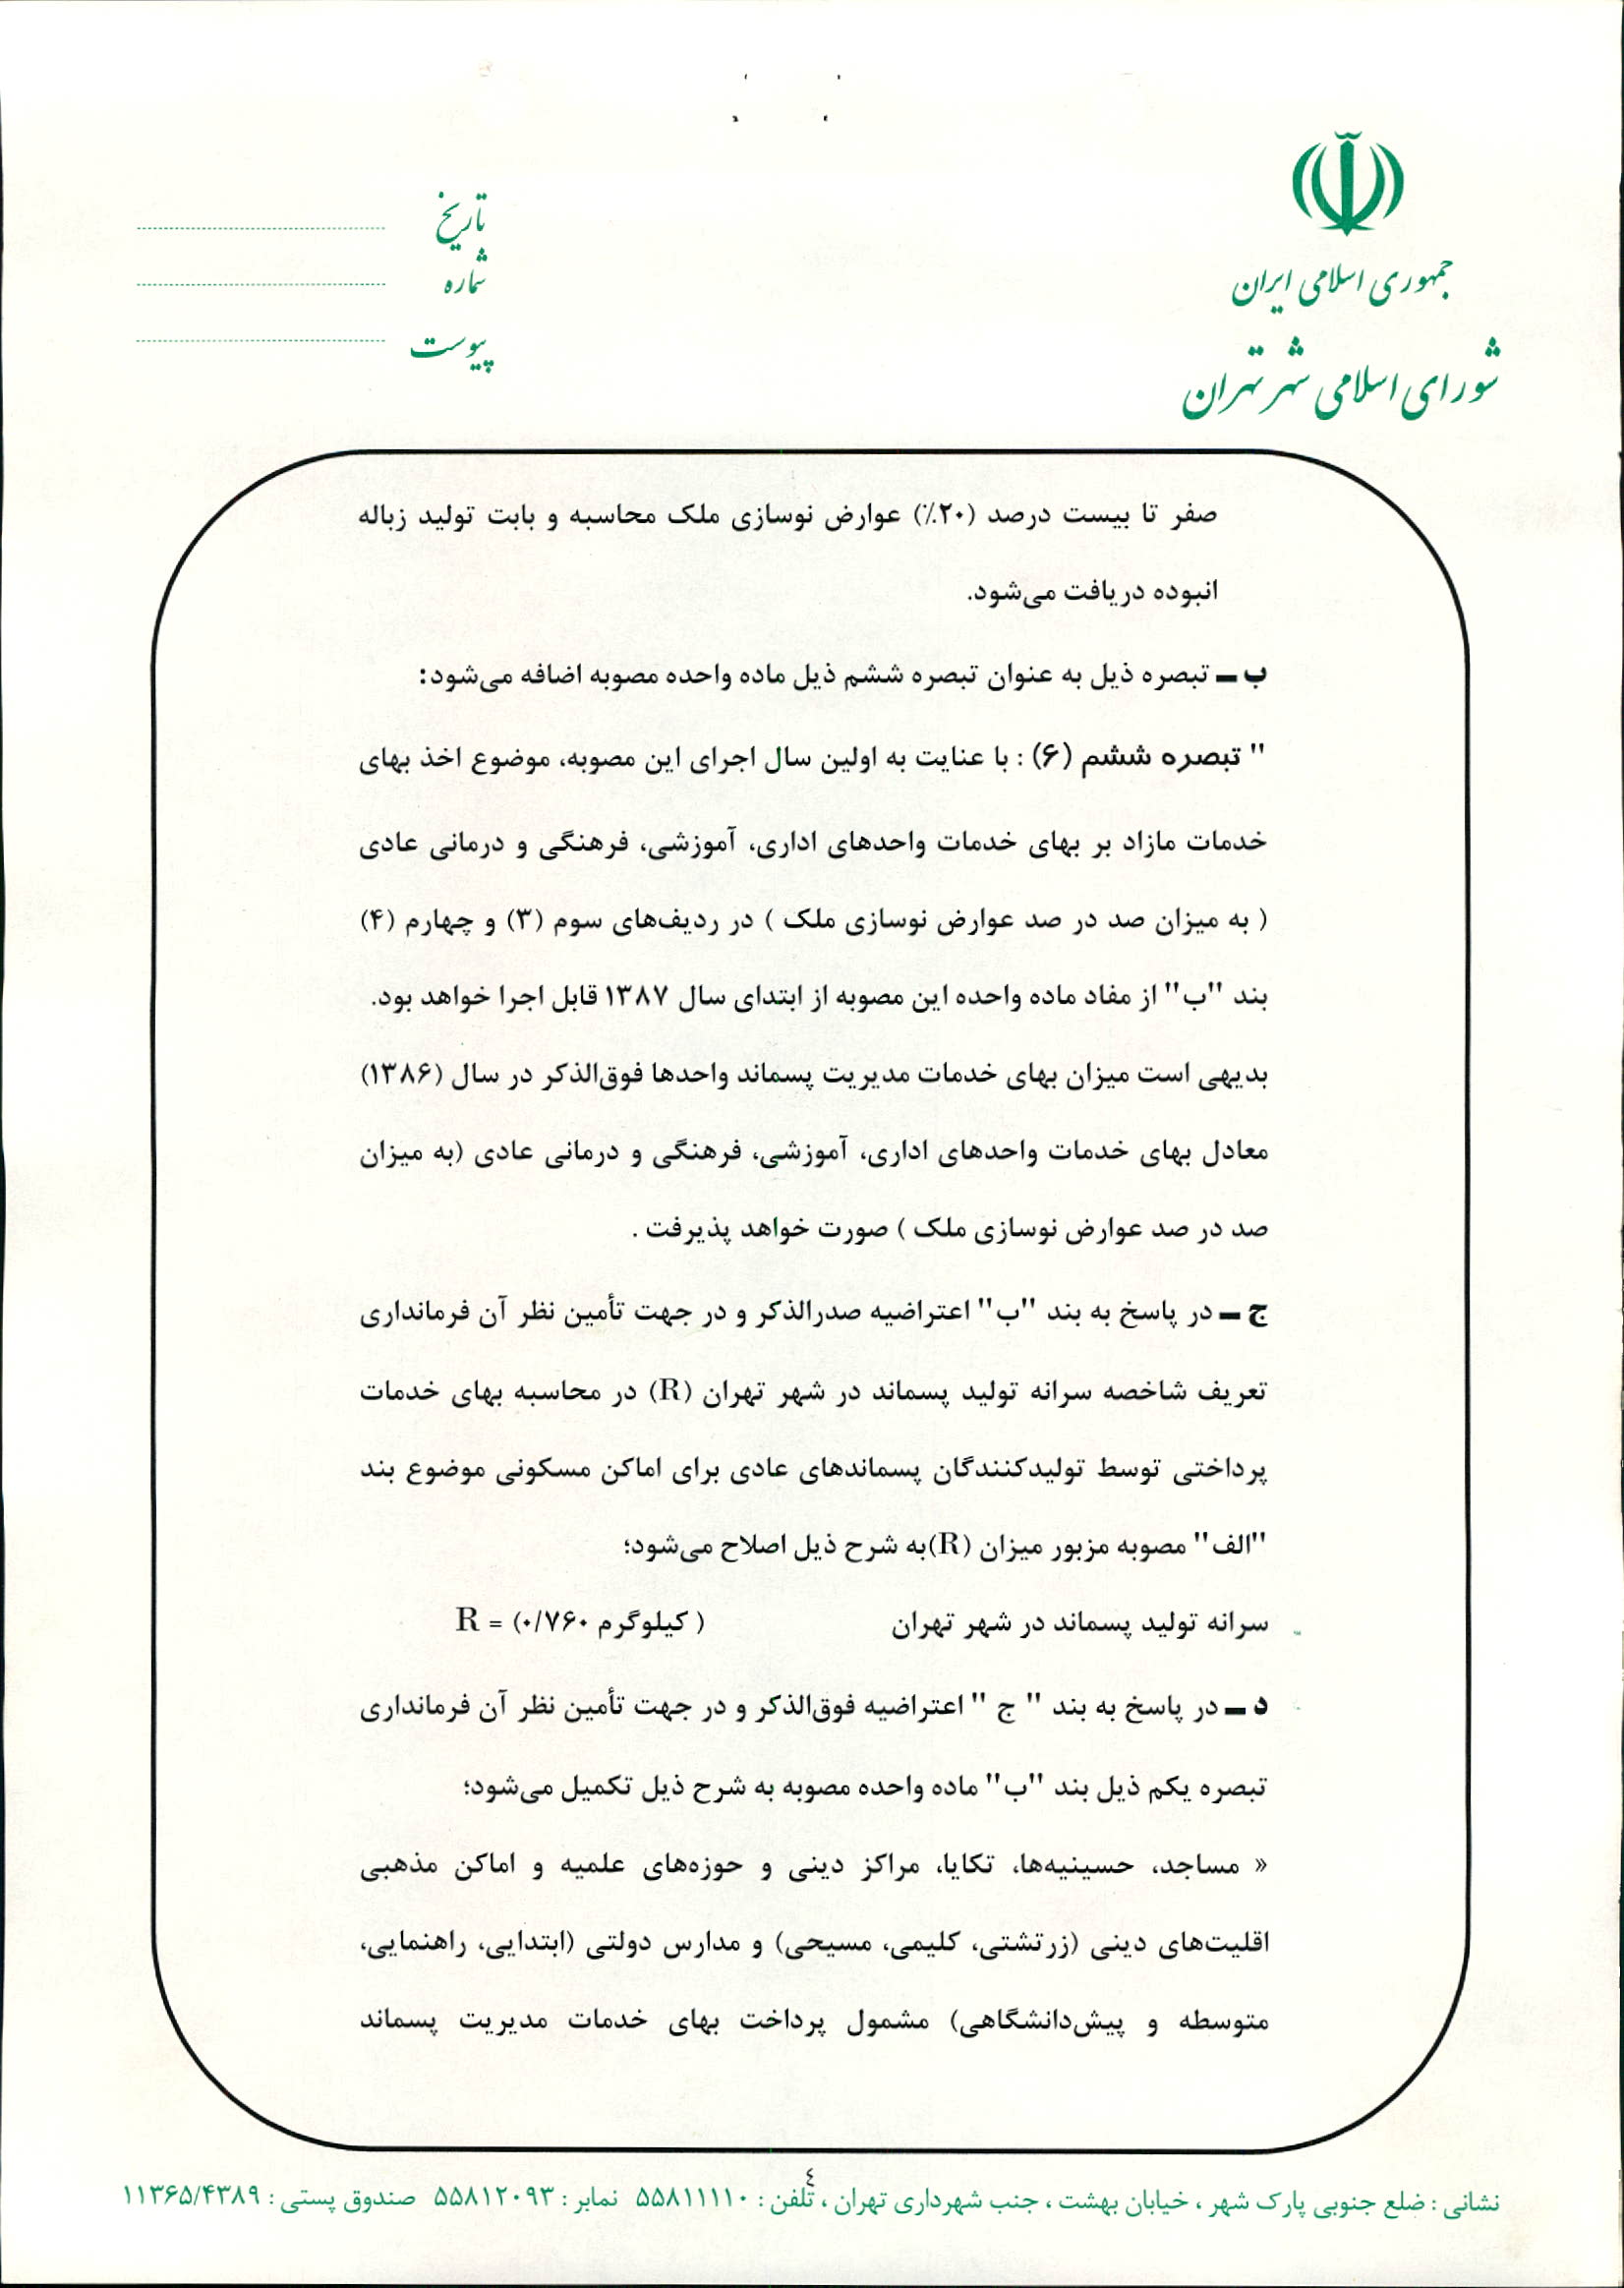 جمهوری اسلامی ایران
شورای اسلامی شهر تهران
تاریخ
شماره
پیوست
صفر تا بیست درصد (۲۰٪) عوارض نوسازی ملک محاسبه و بابت تولید زباله
انبوده دریافت می‌شود.
ب ـ تبصره ذیل به عنوان تبصره ششم ذیل ماده واحده مصوبه اضافه می‌شود:
" تبصره ششم (۶) : با عنایت به اولین سال اجرای این مصوبه، موضوع اخذ بهای
خدمات مازاد بر بهای خدمات واحدهای اداری، آموزشی، فرهنگی و درمانی عادی
( به میزان صد در صد عوارض نوسازی ملک ) در ردیف‌های سوم (۳) و چهارم (۴)
بند "ب" از مفاد ماده واحده این مصوبه از ابتدای سال ۱۳۸۷ قابل اجرا خواهد بود.
بدیهی است میزان بهای خدمات مدیریت پسماند واحدها فوق‌الذکر در سال (۱۳۸۶)
معادل بهای خدمات واحدهای اداری، آموزشی، فرهنگی و درمانی عادی (به میزان
صد در صد عوارض نوسازی ملک ) صورت خواهد پذیرفت .
ج ـ در پاسخ به بند "ب" اعتراضیه صدرالذکر و در جهت تأمین نظر آن فرمانداری
تعریف شاخصه سرانه تولید پسماند در شهر تهران (R) در محاسبه بهای خدمات
پرداختی توسط تولیدکنندگان پسماندهای عادی برای اماکن مسکونی موضوع بند
"الف" مصوبه مزبور میزان (R)به شرح ذیل اصلاح می‌شود؛
سرانه تولید پسماند در شهر تهران ( کیلوگرم ۰/۷۶۰) = R
د ـ در پاسخ به بند " ج " اعتراضیه فوق‌الذکر و در جهت تأمین نظر آن فرمانداری
تبصره یکم ذیل بند "ب" ماده واحده مصوبه به شرح ذیل تکمیل می‌شود؛
« مساجد، حسینیه‌ها، تکایا، مراکز دینی و حوزه‌های علمیه و اماکن مذهبی
اقلیت‌های دینی (زرتشتی، کلیمی، مسیحی) و مدارس دولتی (ابتدایی، راهنمایی،
متوسطه و پیش‌دانشگاهی) مشمول پرداخت بهای خدمات مدیریت پسماند
٤
نشانی : ضلع جنوبی پارک شهر ، خیابان بهشت ، جنب شهرداری تهران ، تلفن : ۵۵۸۱۱۱۱۰ نمابر : ۵۵۸۱۲۰۹۳ صندوق پستی : ۱۱۳۶۵/۴۳۸۹